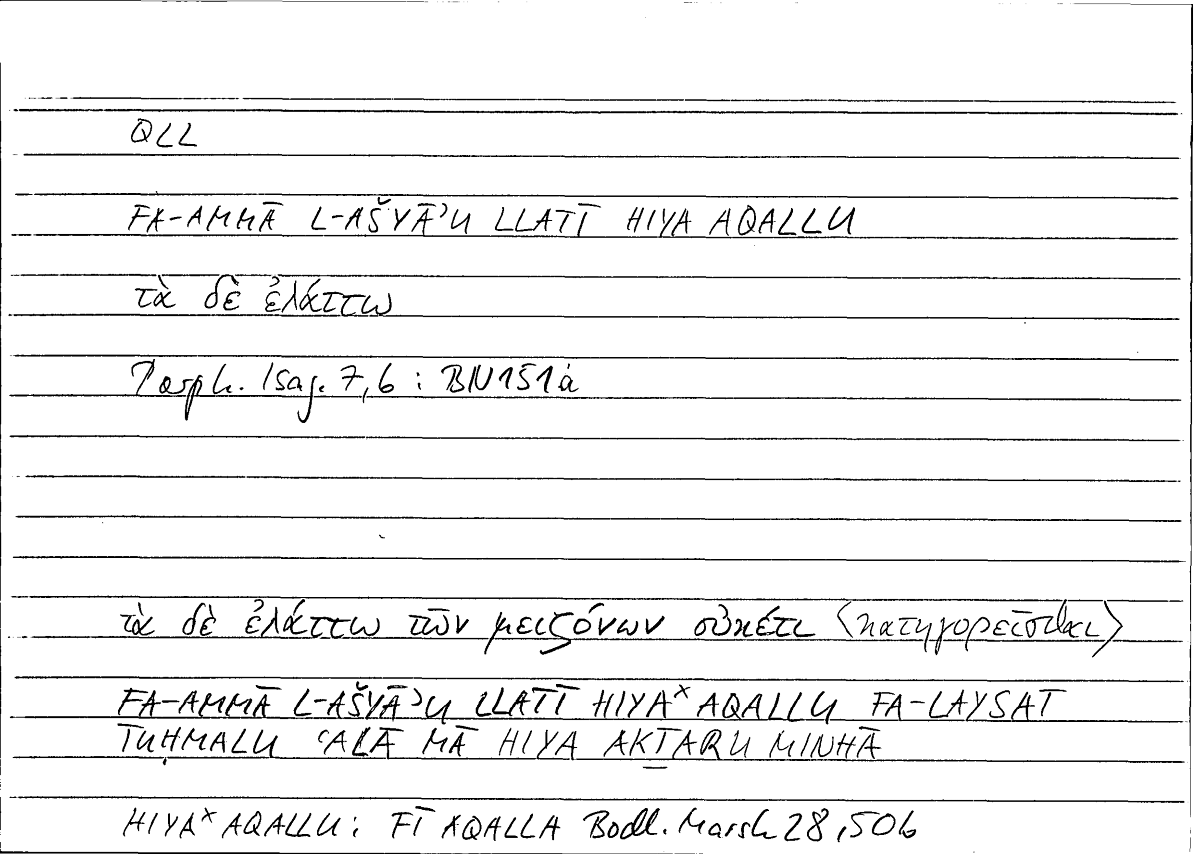 QLL
FA-AMMĀ L-AŠYĀʾU LLATĪ HIYA AQALLU
τὰ δὲ ἐλάττω
Porph. Isag. 7,6 : BN 151a
τὰ δὲ ἐλάττω τῶν μειζόνων οὐκέτι ⟨κατηγορεῖσθαι⟩
FA-AMMĀ L-AŠYĀʾU LLATĪ HIYAˣ AQALLU FA-LAYSAT
TUḤMALU ʿALĀ MĀ HIYA AKṮARU MINHĀ
HIYAˣ AQALLU: FĪ AQALLA Bodl. Marsh 28,50b